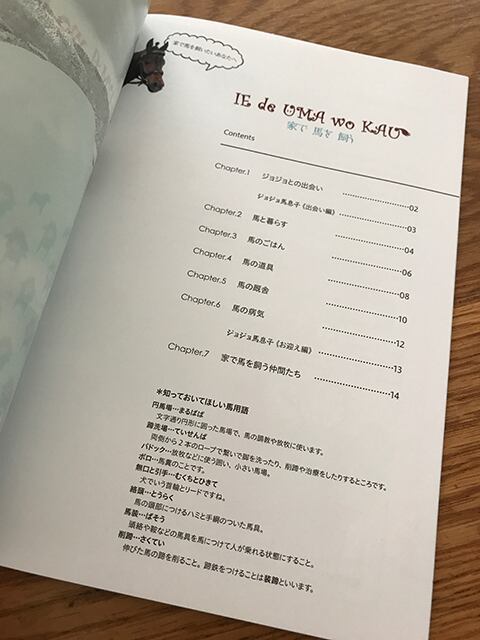 家で馬を飼いたいあなたへ
IE de UMA wo KAU
家で 馬を 飼う
Contents
Chapter.1 ジョジョとの出会い 02
ジョジョ馬息子《出会い編》 03
Chapter.2 馬と暮らす 04
Chapter.3 馬のごはん 06
Chapter.4 馬の道具 08
Chapter.5 馬の厩舎 10
Chapter.6 馬の病気 12
ジョジョ馬息子《お迎え編》 13
Chapter.7 家で馬を飼う仲間たち 14
＊知っておいてほしい馬用語
円馬場…まるばば
文字通り円形に囲った馬場で、馬の調教や放牧に使います。
蹄洗場…ていせんば
両側から2本のロープで繋いで脚を洗ったり、削蹄や治療をしたりするところです。
パドック…放牧などに使う囲い、小さい馬場。
ボロ…馬糞のことです。
無口と引手…むくちとひきて
犬でいう首輪とリードですね。
絡頭…とうらく
馬の頭部につけるハミと手綱のついた馬具。
馬装…ばそう
頭絡や鞍などの馬具を馬につけて人が乗れる状態にすること。
削蹄…さくてい
伸びた馬の蹄を削ること。蹄鉄をつけることは装蹄といいます。